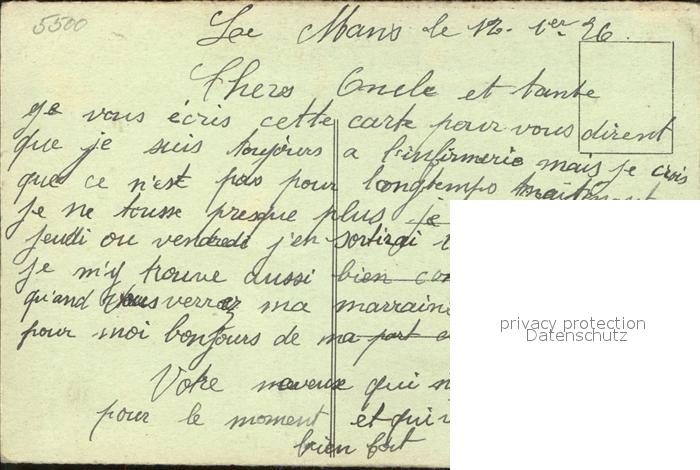 5500
Le Mans le 12. 1er 26.
Chers Oncle et tante
Je vous écris cette carte pour vous dirent
que je suis toujours a l'infirmerie mais je crois
que ce n'est pas pour longtemps maitenant
je ne tousse presque plus je
jeudi ou vendredi j'en sortirai
je m'y trouve aussi bien
qu'and vous verrez ma marraine
pour moi bonjours de ma part
Votre neveux qui
pour le moment et qui
bien fort
privacy protection
Datenschutz